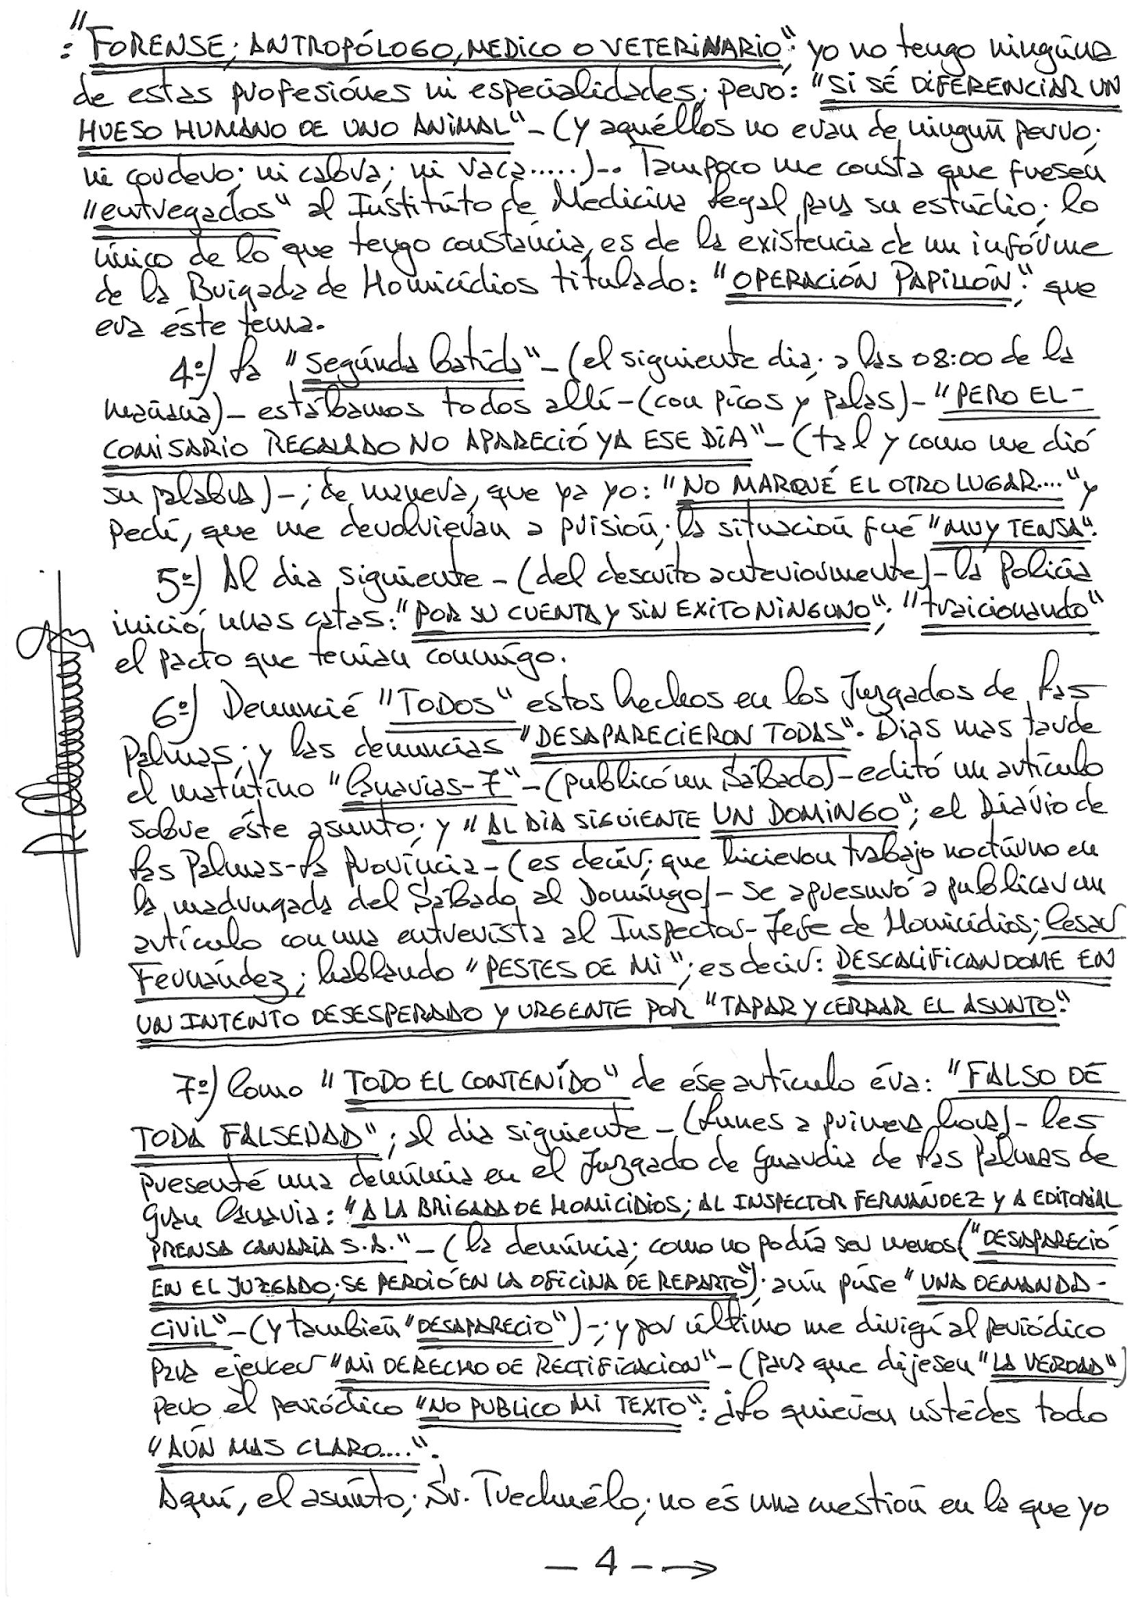 :"FORENSE; ANTROPÓLOGO, MEDICO O VETERINARIO"; yo no tengo ningúna
de estas profesiónes ni especialidades; pero: "SI SÉ DIFERENCIAR UN
HUESO HUMANO DE UNO ANIMAL"-(Y aquéllos no eran de ningún perro;
ni cordero; ni cabra; ni vaca.....)-. Tampoco me consta que fuesen
"entregados" al Institúto de Medicina Legal para su estúdio; lo
único de lo que tengo constáncia, es de la existencia de un infórme
de la Brigada de Homicídios titulado: "OPERACIÓN PAPILLÓN"; que
era éste tema.
4º) La "Segúnda batida"-(el siguiente dia; a las 08:00 de la
mañana)- estábamos todos allí-(con picos y palas)-"PERO EL-
COMISARIO REGALADO NO APARECIÓ YA ESE DIA"-(tal y como me dió
su palabra)-; de manera, que ya yo: "NO MARQUÉ EL OTRO LUGAR...." y
pedí, que me devolvieran a prisión; la situación fué "MUY TENSA".
5º) Al dia siguiente-(del descrito anteriormente)-la Policía
inició, unas catas: "POR SU CUENTA Y SIN EXITO NINGUNO"; "traicionando"
el pacto que tenian conmigo.
6º) Denuncié "TODOS" estos hechos en los Juzgados de Las
Palmas; y las denuncias "DESAPARECIERON TODAS". Dias mas tarde
el matutino "Canarias-7"-(publicó un Sábado)-editó un artículo
sobre éste asunto; y "AL DIA SIGUIENTE UN DOMINGO"; el Diário de
Las Palmas-La Província-(es decir; que hicieron trabajo noctúrno en
la madrugada del Sábado al Domingo)-se apresuró a publicar un
artículo con una entrevista al Inspector-Jefe de Homicídios; Cesar
Fernández; hablando "PESTES DE MI"; es decir: DESCALIFICANDOME EN
UN INTENTO DESESPERADO Y URGENTE POR "TAPAR Y CERRAR EL ASUNTO".
7º) Como "TODO EL CONTENÍDO" de ése artículo éra: "FALSO DE
TODA FALSEDAD"; al dia siguiente-(Lunes a primera hora)-les
presenté una denúncia en el Juzgado de Guardia de Las Palmas de
Gran Canaria: "A LA BRIGADA DE HOMICIDIOS; AL INSPECTOR FERNÁNDEZ Y A EDITORIAL
PRENSA CANARIA S.A."-(la denúncia; como no podía ser menos ("DESAPARECIÓ
EN EL JUZGADO; SE PERDIÓ EN LA OFICINA DE REPARTO"); aún púse "UNA DEMANDA-
CIVIL"-(Y también "DESAPARECIO")-; y por último me dirigí al periódico
para ejercer "MI DERECHO DE RECTIFICACION"-(para que dijesen "LA VERDAD")
pero el periódico "NO PUBLICO MI TEXTO": ¿Lo quieren ustedes todo
"AÚN MAS CLARO....".
Aquí, el asunto; Sr. Truchuélo; no és una cuestión en la que yo
- 4 - →